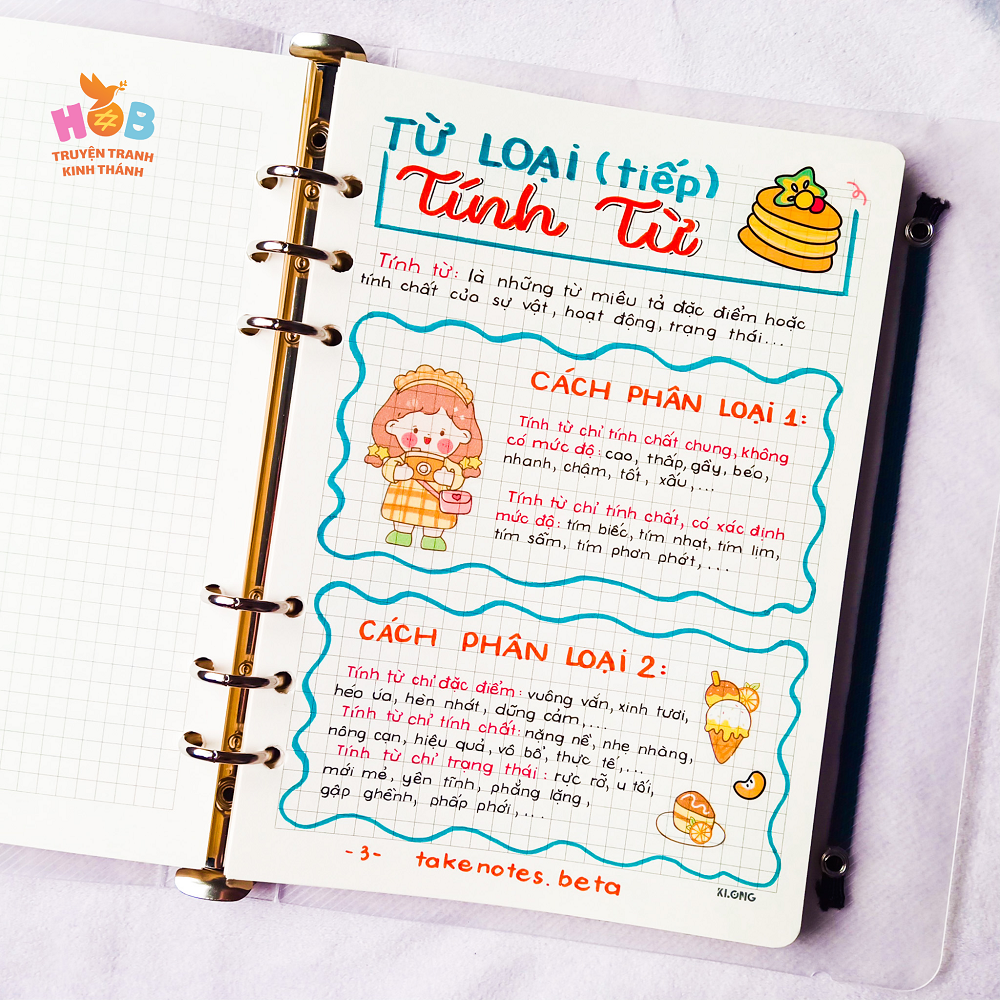 HOB
TRUYỆN TRANH
KINH THÁNH
TỪ LOẠI (tiếp)
Tính Từ
Tính từ: là những từ miêu tả đặc điểm hoặc
tính chất của sự vật, hoạt động, trạng thái...
CÁCH PHÂN LOẠI 1:
Tính từ chỉ tính chất chung, không
có mức độ: cao, thấp, gầy, béo,
nhanh, chậm, tốt, xấu,...
Tính từ chỉ tính chất, có xác định
mức độ: tím biếc, tím nhạt, tím lịm,
tím sẫm, tím phơn phớt,...
CÁCH PHÂN LOẠI 2:
Tính từ chỉ đặc điểm: vuông vắn, xinh tươi,
héo úa, hèn nhát, dũng cảm,...
Tính từ chỉ tính chất: nặng nề, nhẹ nhàng,
nông cạn, hiệu quả, vô bổ, thực tế,...
Tính từ chỉ trạng thái: rực rỡ, u tối,
mới mẻ, yên tĩnh, phẳng lặng,
gập ghềnh, phấp phới,...
-3- takenotes.beta
KLONG